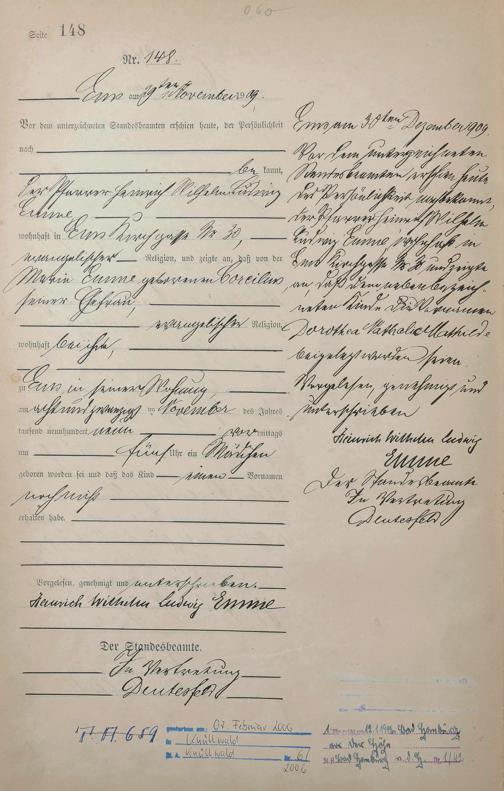 060
Seite 148
Nr. 148.
Ems am 29ten November 1909.
Vor dem unterzeichneten Standesbeamten erschien heute, der Persönlichkeit
nach
be kannt,
der Pfarrer Heinrich Wilhelm Ludwig
Emme,
wohnhaft in Ems Kirchgasse Nr 20,
evangelischer Religion, und zeigte an, daß von der
Maria Emme geborenen Corcilius
seiner Ehefrau,
evangelischer Religion,
wohnhaft bei ihm,
zu Ems in seiner Wohnung
am achtundzwanzigsten November des Jahres
tausend neunhundert neun vor mittags
um fünf Uhr ein Mädchen
geboren worden sei und daß das Kind einen Vornamen
noch nicht
erhalten habe.
Vorgelesen, genehmigt und unterschrieben.
Heinrich Wilhelm Ludwig Emme
Der Standesbeamte.
In Vertretung
Deutesfeld
Ems am 30ten Dezember 1909
Vor dem unterzeichneten
Standesbeamten erschien heute
der Persönlichkeit nach bekannt,
der Pfarrer Heinrich Wilhelm
Ludwig Emme, wohnhaft in
Ems Kirchgasse Nr und zeigte
an, daß dem nebenbezeich-
neten Kinde die Vornamen
Dorothea Nathalie Mathilde
beigelegt worden seien.
Vorgelesen, genehmigt und
unterschrieben
Heinrich Wilhelm Ludwig
Emme
Der Standesbeamte
In Vertretung
Deutesfeld
gestorben am: 07. Februar 2006
in Knüllwald
St. A. Knüllwald Nr. 6/
2006
Bad Homburg
vor der Höhe
Bad Homburg v. d. H.